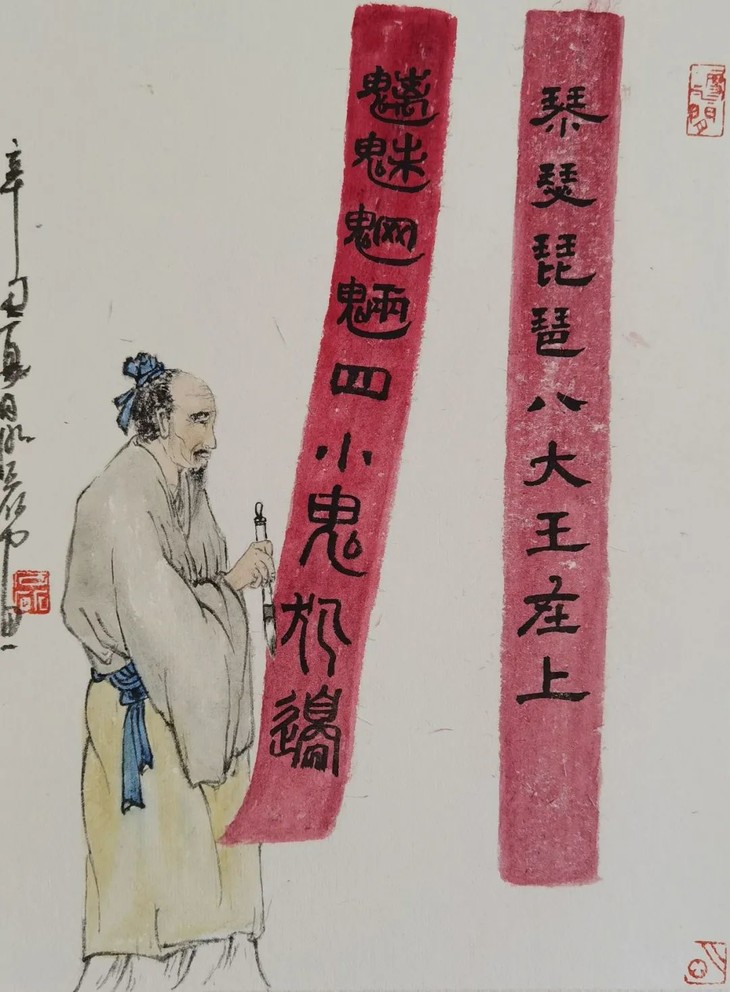 琴瑟琵琶八大王在上
魑魅魍魎四小鬼犯邊
辛丑夏